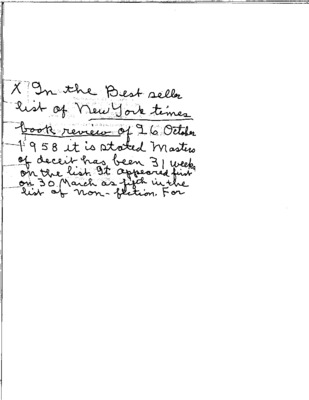 X In the Best seller
list of New York times
book review of 26 October
1958 it is stated Masters
of deceit has been 31 weeks
on the list. It appeared first
on 30 March as fifth in the
list of non-fiction. For